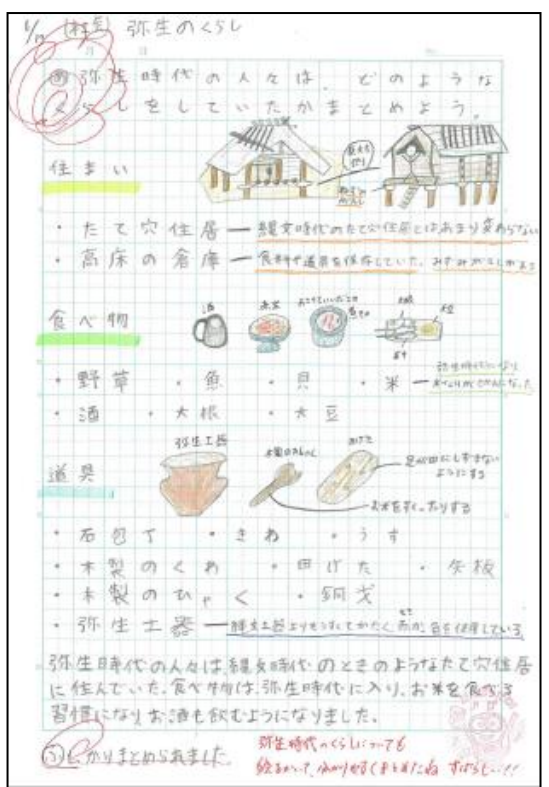 弥生のくらし
め 弥生時代の人々は、どのような
くらしをしていたかまとめよう。
住まい
・たて穴住居 ― 縄文時代のたて穴住居とはあまり変わらない
・高床の倉庫 ― 食料や道具を保存していた。ねずみがえしがある
食べ物
酒
・野草 ・魚 ・貝 ・米 ― 弥生時代になり
・酒 ・大根 ・大豆
道具
弥生土器
木製のおしゃくし
田げた
足が田にしずまない
ようにする
お米をすくったりする
・石包丁 ・きね ・うす
・木製のくわ ・田げた ・矢板
・木製のひしゃく ・銅戈
・弥生土器
弥生時代の人々は、縄文時代のときのようなたて穴住居
に住んでいた。食べ物は、弥生時代に入り、お米を食べる
習慣になりお酒も飲むようになりました。
かりまとめられました
弥生時代のくらしについても
絵をかいて、分かりやすくまとめたね すばらしい!!